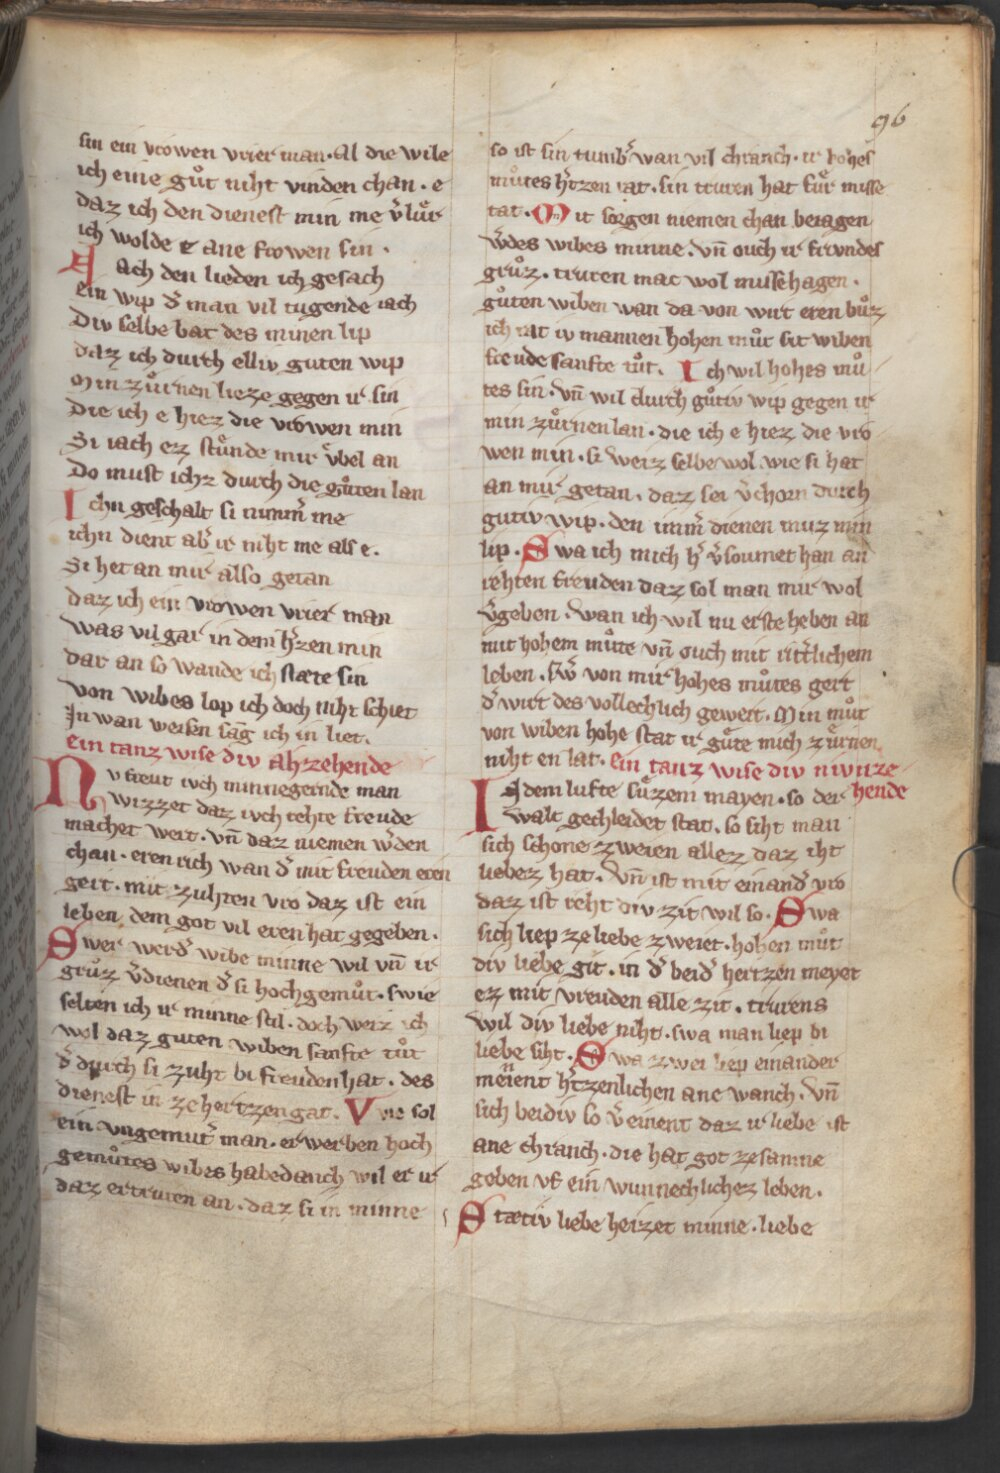 96
sin ein vrowen vrier man · Al die wile
ich eine gůt niht vinden chan · e
daz ich den dienest min me v̾lůr
ich wolde e ane frowen sin ·
Aach den lieden ich gesach
ein wip d̾ man vil tugende iach
Div selbe bat des minen lip
daz ich durch elliv guten wip
Min zůrnen lieze gegen ir sin
Die ich e hiez die vrowen min
Si iach ez stůnde mir v̊bel an
Do must ichz durch die gůten lan
Ichn geschalt si nimm̾ me
ichn dient ab̾ ir niht me als e ·
Si het an mir also getan
daz ich ein vrowen vrier man
Was vil gar in dem h̾zen min
dar an so wande ich stæte sin
von wibes lop ich doch niht schiet
In wan weisen sag ich in liet ·
Ein tanz wise div ahzehende
Nv freut ivch minnegernde man
wizzet daz ivch rehte freude
machet wert · vn̄ daz niemen w̾den
chan · eren rich wan d̾ mit freuden eren
gert · mit zuhten vro daz ist ein
leben dem got vil eren hat gegeben ·
Swer werd̾ wibe minne wil vn̄ ir
grůz v̾dienen d̾ si hochgemůt · swie
selten ich ir minne stil · doch weiz ich
wol daz guten wiben sanfte tůt
d̾ durch si zuht bi freuden hat · des
dienest in ze hertzen gat · Vvie sol
ein vngemut̾ man · erwerben hoch
gemůtes wibes habedanch wil er ir
daz ertruten an · daz si in minne
so ist sin tumb̾ wan vil chranch · ir hohes
můtes h̾tzen rat · sin truren hat fůr misse
tat · Mit sorgen niemen chan beiagen
w̾des wibes minne · vn̄ ouch ir frvndes
grůz · truren mac wol missehagen ·
gůten wiben wan da von wirt eren bůz
ich rat iv mannen hohen můt sit wiben
freude sanfte tůt · Ich wil hohes mů
tes sin · vn̄ wil durch gůtiv wip gegen ir
min zůrnen lan · die ich e hiez die vro
wen min · si weiz selbe wol wie si hat
an mir getan · daz sei v̾chorn durch
gutiv wip · den imm̾ dienen muz min
lip · Swa ich mich h̾ v̾soumet han an
rehten freuden daz sol man mir wol
v̾geben · wan ich wil nu erste heben an
mit hohem můte vn̄ ouch mit ritt̾lichem
leben · sw̾ von mir hohes můtes gert
d̾ wirt des vollechlich gewert · Min můt
von wiben hohe stat ir gůte mich zůrnen
niht en lat · Ein tanz wise div nivnze
hende
In dem lufte sůzem mayen · so der
walt gechleidet stat · so siht man
sich schone zweien allez daz iht
liebez hat · vn̄ ist mit einand̾ vro
daz ist reht div zit wil so · Swa
sich liep ze liebe zweiet · hohen můt
div liebe git · in d̾ beid̾ hertzen meyet
ez mit vreuden alle zit · trurens
wil div liebe niht · swa man liep bi
liebe siht · Swa zwei liep einander
meinent h̾tzenlichen ane wanch · vn̄
sich beidiv so v̾einent daz ir liebe ist
ane chranch · die hat got zesamne
geben vf ein wunnechlichez leben ·
Stætiv liebe heizet minne · liebe